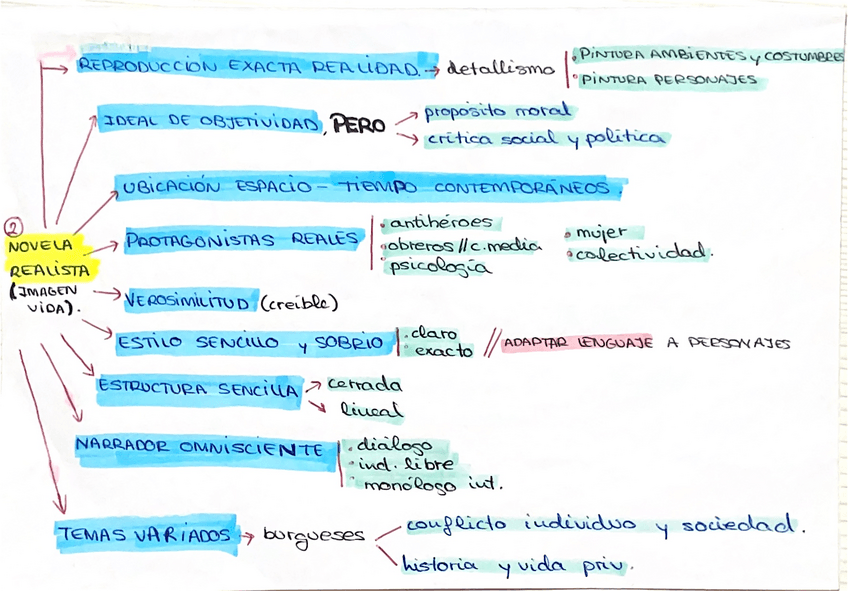 REPRODUCCIÓN EXACTA REALIDAD. → detallismo
• PINTURA AMBIENTES y COSTUMBRES
• PINTURA PERSONAJES
IDEAL DE OBJETIVIDAD, PERO
propósito moral
crítica social y política
UBICACIÓN ESPACIO - TIEMPO CONTEMPORÁNEOS.
②
NOVELA
REALISTA
(IMAGEN
VIDA).
PROTAGONISTAS REALES
• antihéroes
• obreros // c. media
• psicología
• mujer
• colectividad.
VEROSIMILITUD (creíble)
ESTILO SENCILLO y SOBRIO
• claro
• exacto
// ADAPTAR LENGUAJE A PERSONAJES
ESTRUCTURA SENCILLA
cerrada
lineal
NARRADOR OMNISCIENTE
• diálogo
• ind. libre
• monólogo int.
TEMAS VARIADOS → burgueses
conflicto individuo y sociedad.
historia y vida priv.